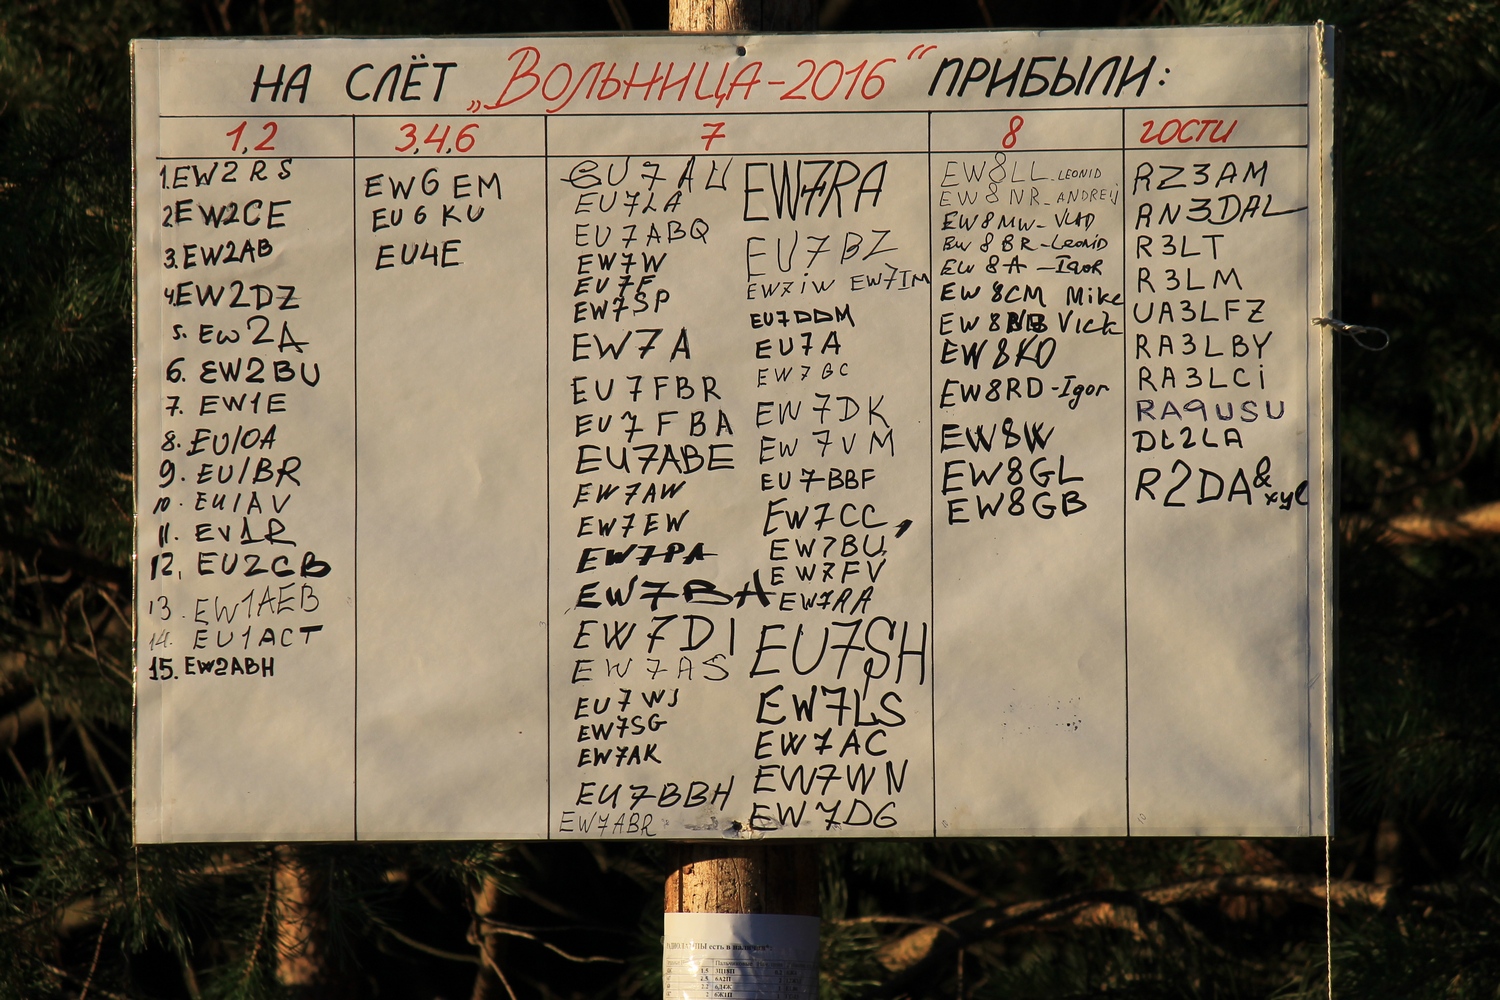 НА СЛЁТ „ВОЛЬНИЦА-2016“ ПРИБЫЛИ:
1,2
1. EW2RS
2. EW2CE
3. EW2AB
4. EW2DZ
5. EW2A
6. EW2BU
7. EW1E
8. EU1OA
9. EU1BR
10. EU1AV
11. EV1R
12. EU2CB
13. EW1AEB
14. EU1ACT
15. EW2ABH
3,4,6
EW6EM
EU6KU
EU4E
7
EU7AU
EU7LA
EU7ABQ
EW7W
EU7F
EW7SP
EW7A
EU7FBR
EU7FBA
EU7ABE
EW7AW
EW7EW
EW7PA
EW7BA
EW7DI
EW7AS
EU7WJ
EW7SG
EW7AK
EU7BBH
EW7ABR
EW7RA
EU7BZ
EW7IW EW7IM
EU7DDM
EU7A
EW7GC
EW7DK
EW7VM
EU7BBF
EW7CC,
EW7BU
EW7FV
EW7AA
EU7SH
EW7LS
EW7AC
EW7WN
EW7DG
8
EW8LL. LEONID
EW8NR_ANDREIJ
EW8MW-VLAD
EW8BR-Leonid
EW8A-Igor
EW8CM Mike
EW8NB Vick
EW8KO
EW8RD-Igor
EW8W
EW8GL
EW8GB
ГОСТИ
RZ3AM
RN3DAL
R3LT
R3LM
UA3LFZ
RA3LBY
RA3LCi
RA9USU
DL2LA
R2DA&xyl